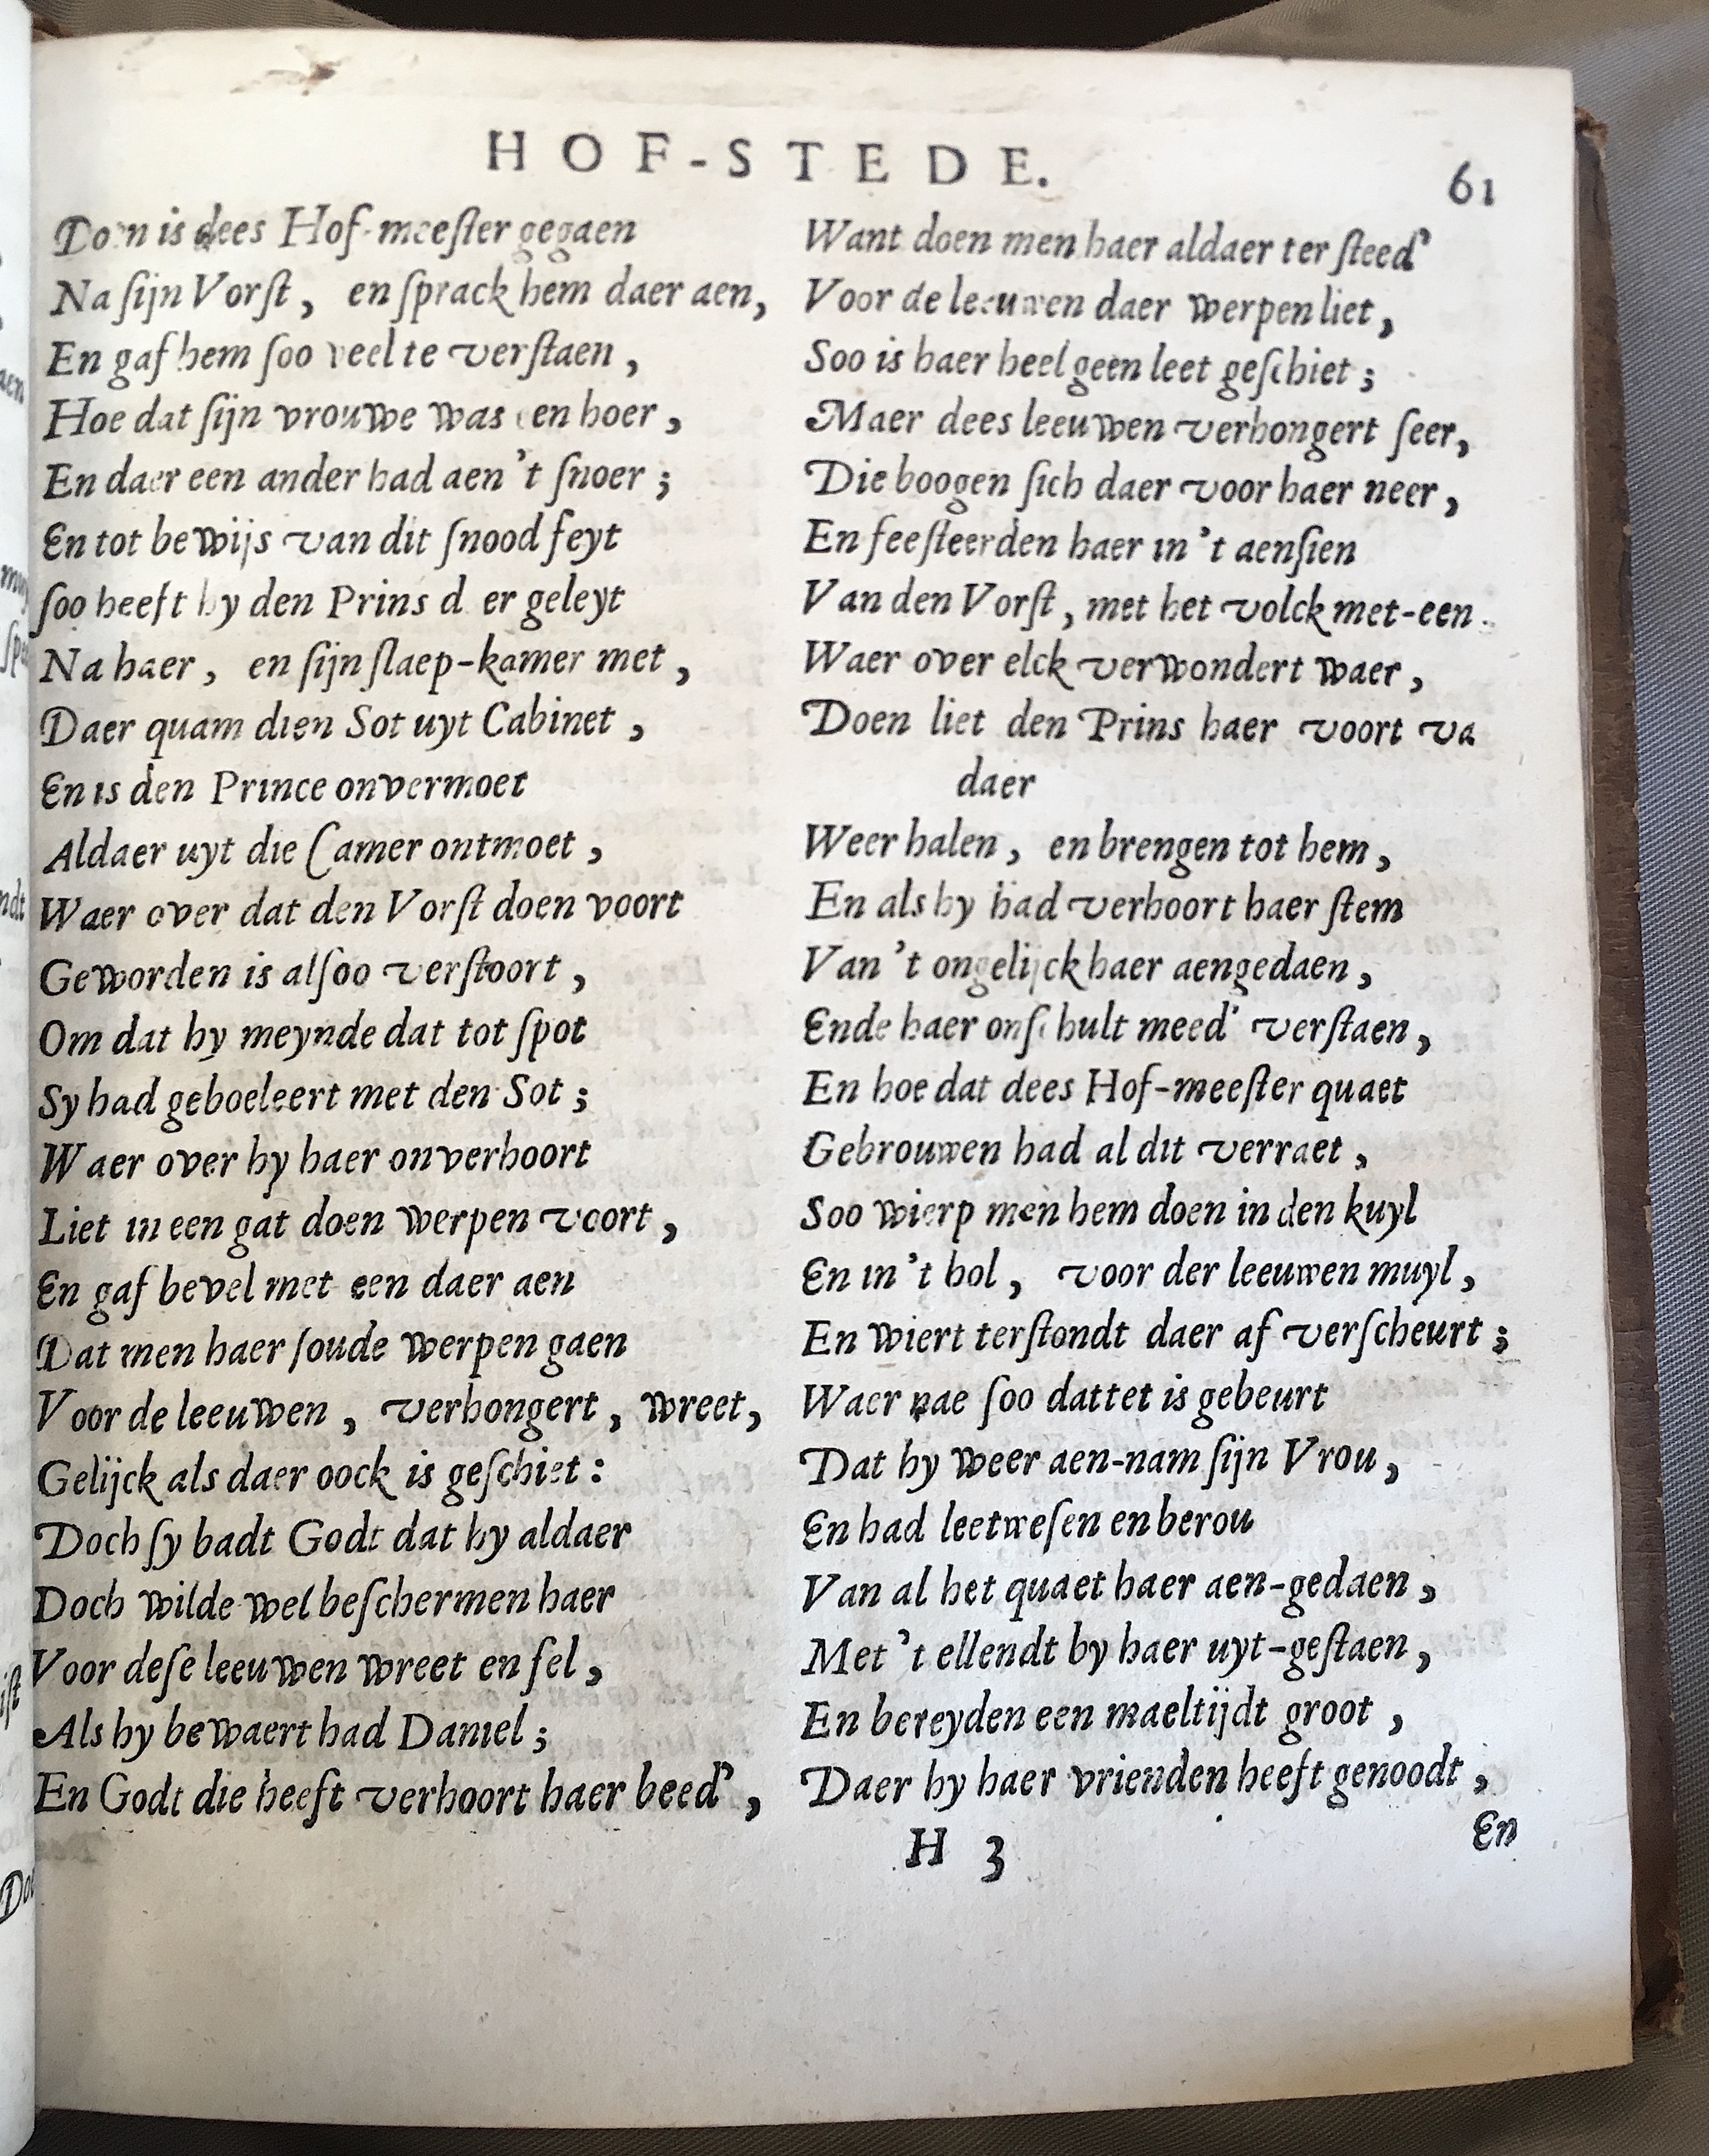 HOF-STEDE. 61
Doen is dees Hof-meeſter gegaen
Na ſijn Vorſt, en ſprack hem daer aen,
En gaf hem ſoo veel te verſtaen,
Hoe dat ſijn vrouwe was een hoer,
En daer een ander had aen 't ſnoer;
En tot bewijs van dit ſnood feyt
ſoo heeft hy den Prins d er geleyt
Na haer, en ſijn ſlaep-kamer met,
Daer quam dien Sot uyt Cabinet,
En is den Prince onvermoet
Aldaer uyt die Camer ontmoet,
Waer over dat den Vorſt doen voort
Geworden is alſoo verſtoort,
Om dat hy meynde dat tot ſpot
Sy had geboeleert met den Sot;
Waer over hy haer onverhoort
Liet in een gat doen werpen voort,
En gaf bevel met een daer aen
Dat men haer ſoude werpen gaen
Voor de leeuwen, verhongert, wreet,
Gelijck als daer oock is geſchiet:
Doch ſy badt Godt dat hy aldaer
Doch wilde wel beſchermen haer
Voor deſe leeuwen wreet en fel,
Als hy bewaert had Daniel;
En Godt die heeft verhoort haer beed',
Want doen men haer aldaer ter ſteed'
Voor de leeuwen daer werpen liet,
Soo is haer heel geen leet geſchiet;
Maer dees leeuwen verhongert ſeer,
Die boogen ſich daer voor haer neer,
En feeſteerden haer in 't aenſien
Van den Vorſt, met het volck met-een.
Waer over elck verwondert waer,
Doen liet den Prins haer voort va
daer
Weer halen, en brengen tot hem,
En als hy had verhoort haer ſtem
Van 't ongelijck haer aengedaen,
Ende haer onſchult meed' verſtaen,
En hoe dat dees Hof-meeſter quaet
Gebrouwen had al dit verraet,
Soo wierp men hem doen in den kuyl
En in 't hol, voor der leeuwen muyl,
En wiert terſtondt daer af verſcheurt;
Waer nae ſoo dattet is gebeurt
Dat hy weer aen-nam ſijn Vrou,
En had leetweſen en berou
Van al het quaet haer aen-gedaen,
Met 't ellendt by haer uyt-geſtaen,
En bereyden een maeltijdt groot,
Daer hy haer vrienden heeft genoodt,
H 3 En